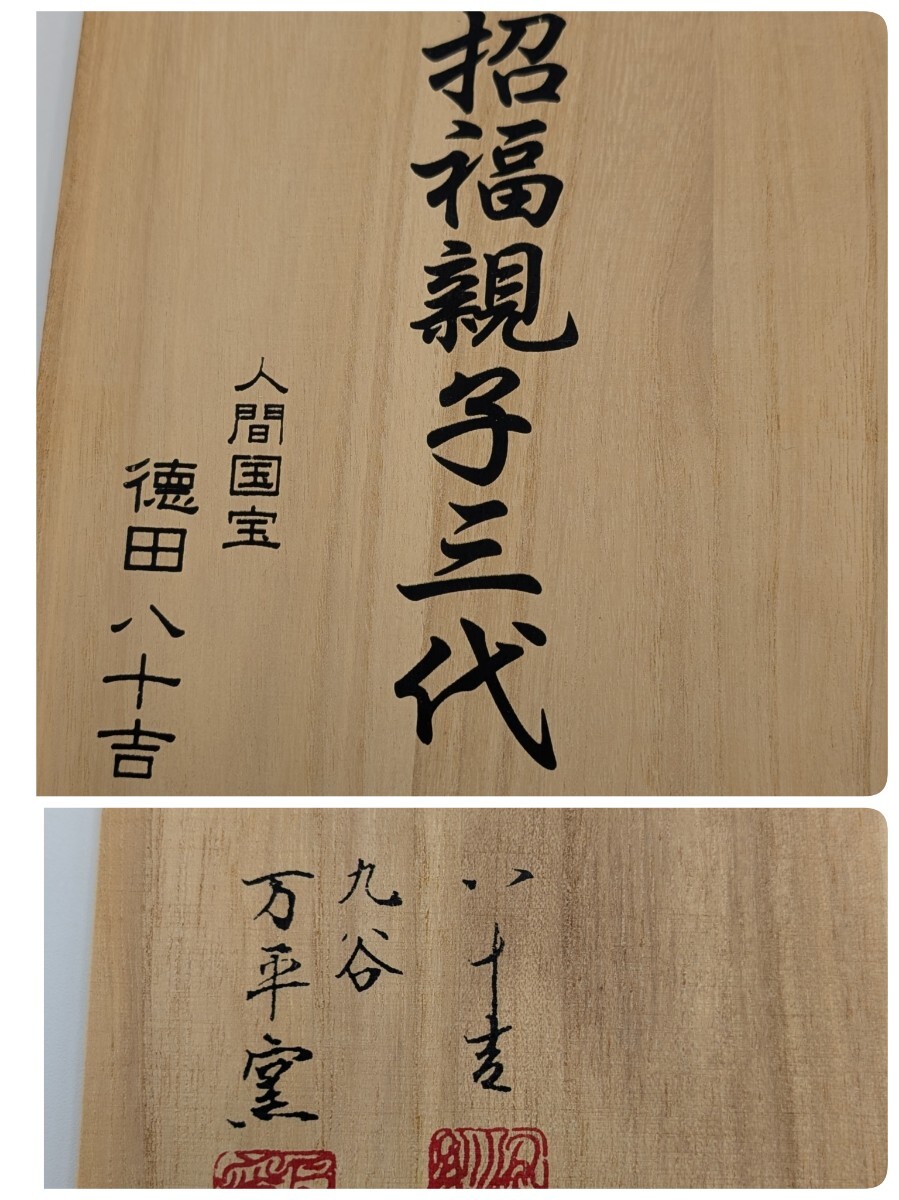 招福親子三代
人間国宝
徳田八十吉
八十吉
九谷
万平窯